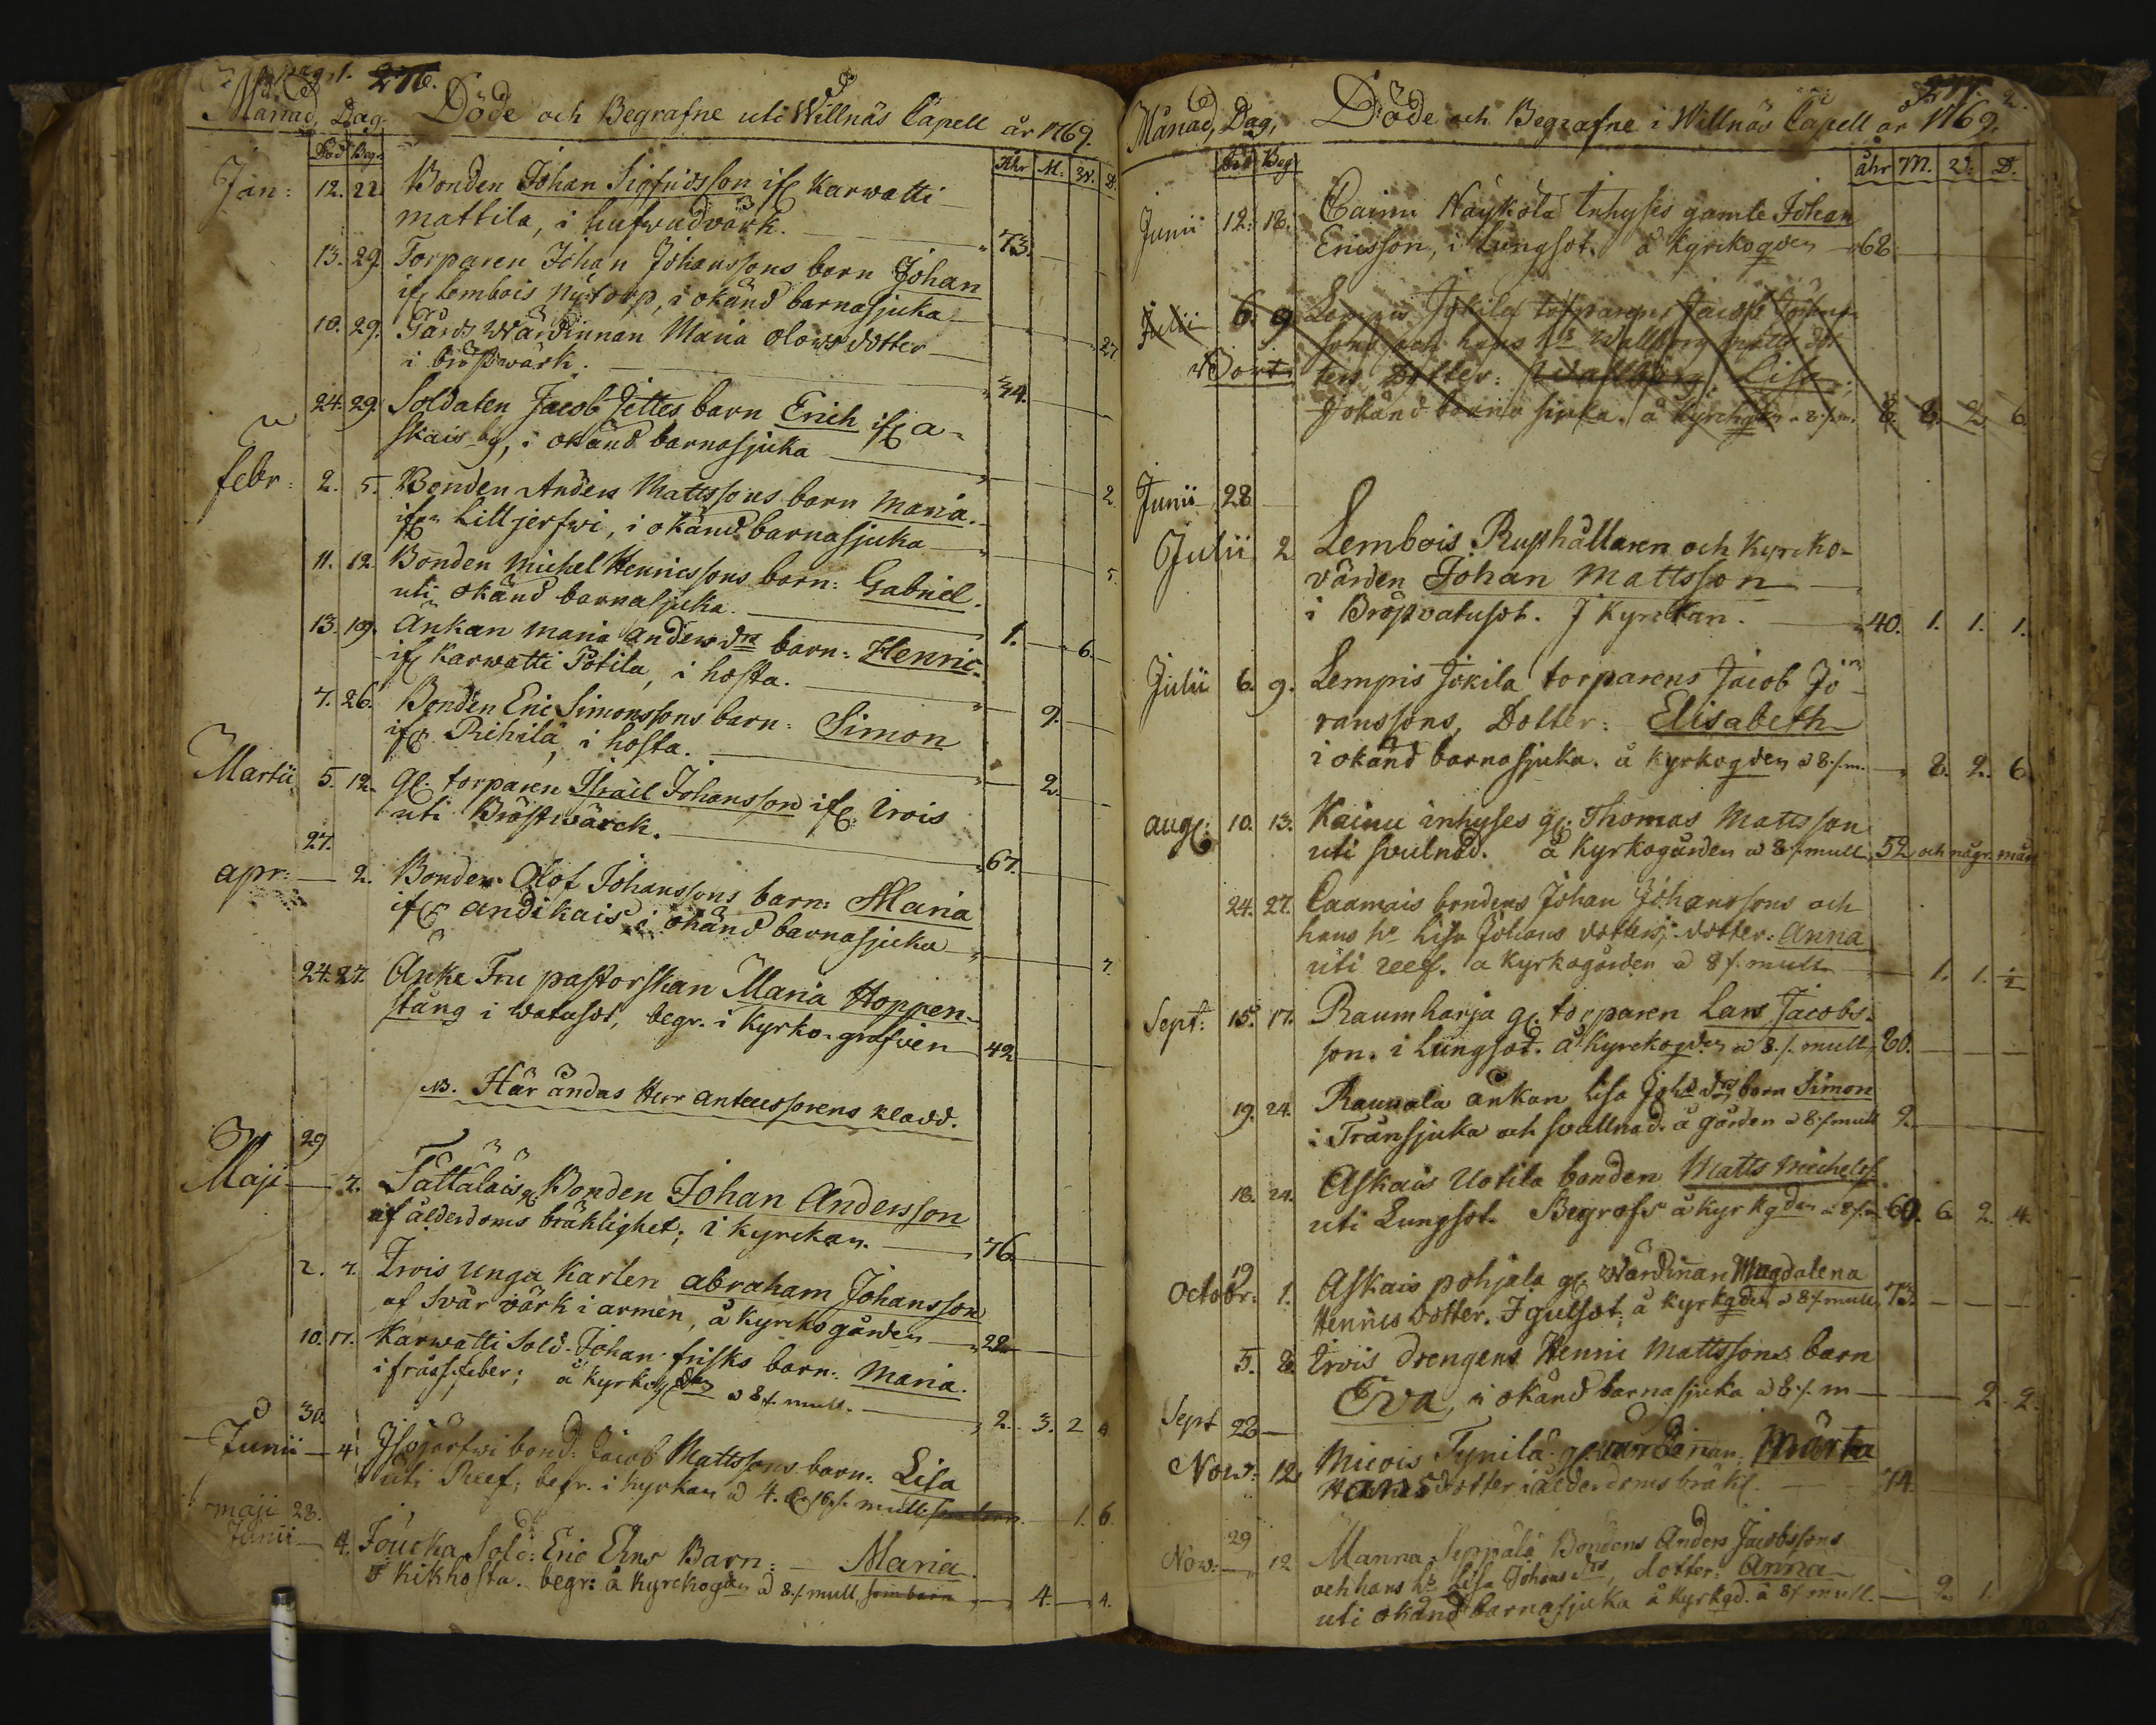 pag. 1. 276.
Månad, Dag. Döde och Begrafne uti Willnäs Capell år 1769.
Död Begr. Åhr M. W. D.
Jan: 12. 22. Bonden Johan Sigfridsson ifr Karwatti
mattila, i hufwudwärk. 73.
13. 29. Torparen Johan Johanssons barn Johan
ifr Lembois Nytorp, i okänd barnasjuka 27
10. 29. Wärdinnan Maria Olows dotter
i bröstwärk. 34.
24. 29. Soldaten Jacob Jettes barn Erich ifr a-
skais by, i okänd barnasjuka 2
Febr: 2. 5. Bonden Anders Mattssons barn Maria.
ifrn Lilljerfwi, i okänd barnasjuka 5.
11. 12. Bonden Michel Henricssons barn: Gabriel.
uti okänd barnasjuka. 1. 6.
13. 19. Änkan Maria Anders dra barn: Henric.
ifr Karwatti Potila, i hosta. 9.
7. 26. Bonden Eric Simonssons barn: Simon
ifr Rihilä, i hosta. 2.
Martii 5. 12. gl. torparen Israel Johansson ifr Irois
uti Bröstwärck. 67.
27.
apr: — 2. Bonden Olof Johanssons barn: Maria
ifr andikais i okänd barnasjuka 7.
24. 27. Änke Fru pastorskan Maria Hoppen-
stång i watusot, begr. i Kyrko-grafwen 42
NB. Här ändas Herr antecessorens kladd.
29
Maji — 7. Tättäläis gl. Bonden Johan Andersson
af ålderdoms bräklighet; i Kyrckan. 76.
2. 7. Irois unga Karlen abraham Johansson
af svår värk i armen, å Kyrckogården 22
10. 17. Karwatti Sold. Johan frisks barn: Maria.
i frässfeber; å Kyrkogden a 8 f. mull. 2. 3. 2 4
30.
Junii — 4. Isojärfwi bond. Jacob Mattssons barn: Lisa
uti Reef; begr. i Kyrkan a 4. 1. 6.
maji 28.
Junii — 4. Joucka Sold: Eric Ehns Barn: Maria.
i Kikhosta. begr: å Kyrckogden a 8 f mull, som barn 4. 4.
277. 2.
Månad, Dag, Döde och Begrafne i Willnäs Capell år 1769.
Död Beg åhr M. W. D.
Junii 12. 18. Cainu Näykölä Inhyses gamle Johan
Ericsson, i lungsot. å Kyrckogden 68
Julii 6. 9. Lempis Jokila torparen Jacob Jörans
sons och hans h: Wallborg Matts dot
Bort ters Dotter: Wallborg. Lisa;
J okänd barna siuka. å Kyrckogden a 8 f. m. 8. 8. 2. 6.
Junii 28
Julii 2 Lembois Rusthållaren och Kyrcko-
värden Johan Mattsson
i Bröstvatusot. J Kyrckan. 40. 1. 1. 1.
Julii 6. 9. Lempis Jokila torparens Jacob Jö-
ranssons, Dotter: Elisabeth
i okänd barnasjuka. å Kyrkogden a 8 f. m. 8. 2. 6.
aug: 10. 13. Kainu inhyses gl. Thomas Mattsson
uti svulnad. å Kyrkogården a 8 f mull 52 och någr. mån
24. 27. Caamais bondens Johan Johanssons och
hans h: Lisa Johans dotters: dotter: Anna
uti reef. å Kyrkogården a 8 f. mull 1. 1. ½
Sept: 15. 17. Raumharja gl. torparen Lars Jacobs-
son. i lungsot. å Kyrckogden a 8. f. mull, 80.
19. 24. Raumola änkan Lisa Johs drs barn Simon
i Trånsjuka och svullnad. å gården a 8 f mull 9.
18. 24. Askais Uotila bonden Matts Michelss.
uti Lungsot. Begrofs å Kyrkgden a 8 f. m. 60. 6 2. 4.
19
Octobr: 1. Askais pohjala gl. Wärdinan Magdalena
Henrics dotter. I gulsot; å Kyrkgden a 8 f mull 73.
5. 8. Irois drengens Henric Mattssons barn
Eva, i okänd barnasjuka a 8 f. m 2. 2.
Sept 28
Now: 12. Miois Tynilä gl. värdinan Märta
Hans dotter i ålderdoms bräkl. 74.
29
Now: — 12 Manna Seppälä Bondens Anders Jacobssons
och hans h: Lisa Johans drs, dotter: Anna
uti okänd barnasjuka å Kyrkgd. a 8 f mull. 2. 1.